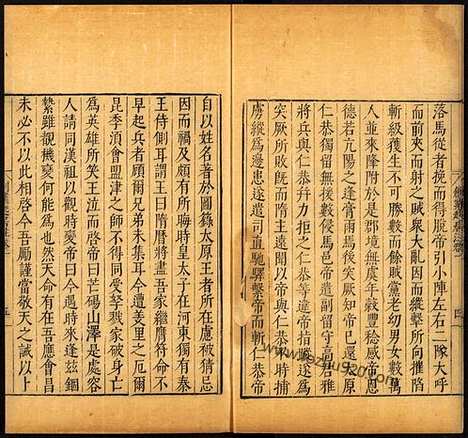 落馬從者挽而得脫帝引小陣左右二隊大呼
而前夾而射之賊衆大亂因而縱擊所向摧陷
斬級獲生不可勝數而餘賊黨老幼男女數萬
人並來降附於是郡境無虞年穀豐稔感帝恩
德若亢陽之逢膏雨馬後突厥知帝已還太原
仁恭獨留無援數侵馬邑帝遣副留守高君雅
將兵與仁恭并力拒之仁恭等違帝指蹤遂爲
突厥所敗旣而隋主遠聞以帝與仁恭不時捕
虜縱爲邊患遂遣司直馳驛繫帝而斬仁恭帝
自以姓名著於圖籙太原王者所在慮被猜忌
因而禍及頗有所晦時皇太子在河東獨有秦
王侍側耳謂王曰隋曆將盡吾家繼膺符命不
早起兵者顧爾兄弟未集耳今遭羑里之厄爾
昆季須會盟津之師不得同受孥戮家破身亡
爲英雄所笑王泣而啓帝曰芒碭山澤是處容
人請同漢祖以觀時變帝曰今遇時來逢玆錮
縶雖覩機變何能爲也然天命有在吾應會昌
未必不以此相啓今吾勵謹當敬天之誡以卜
四
五